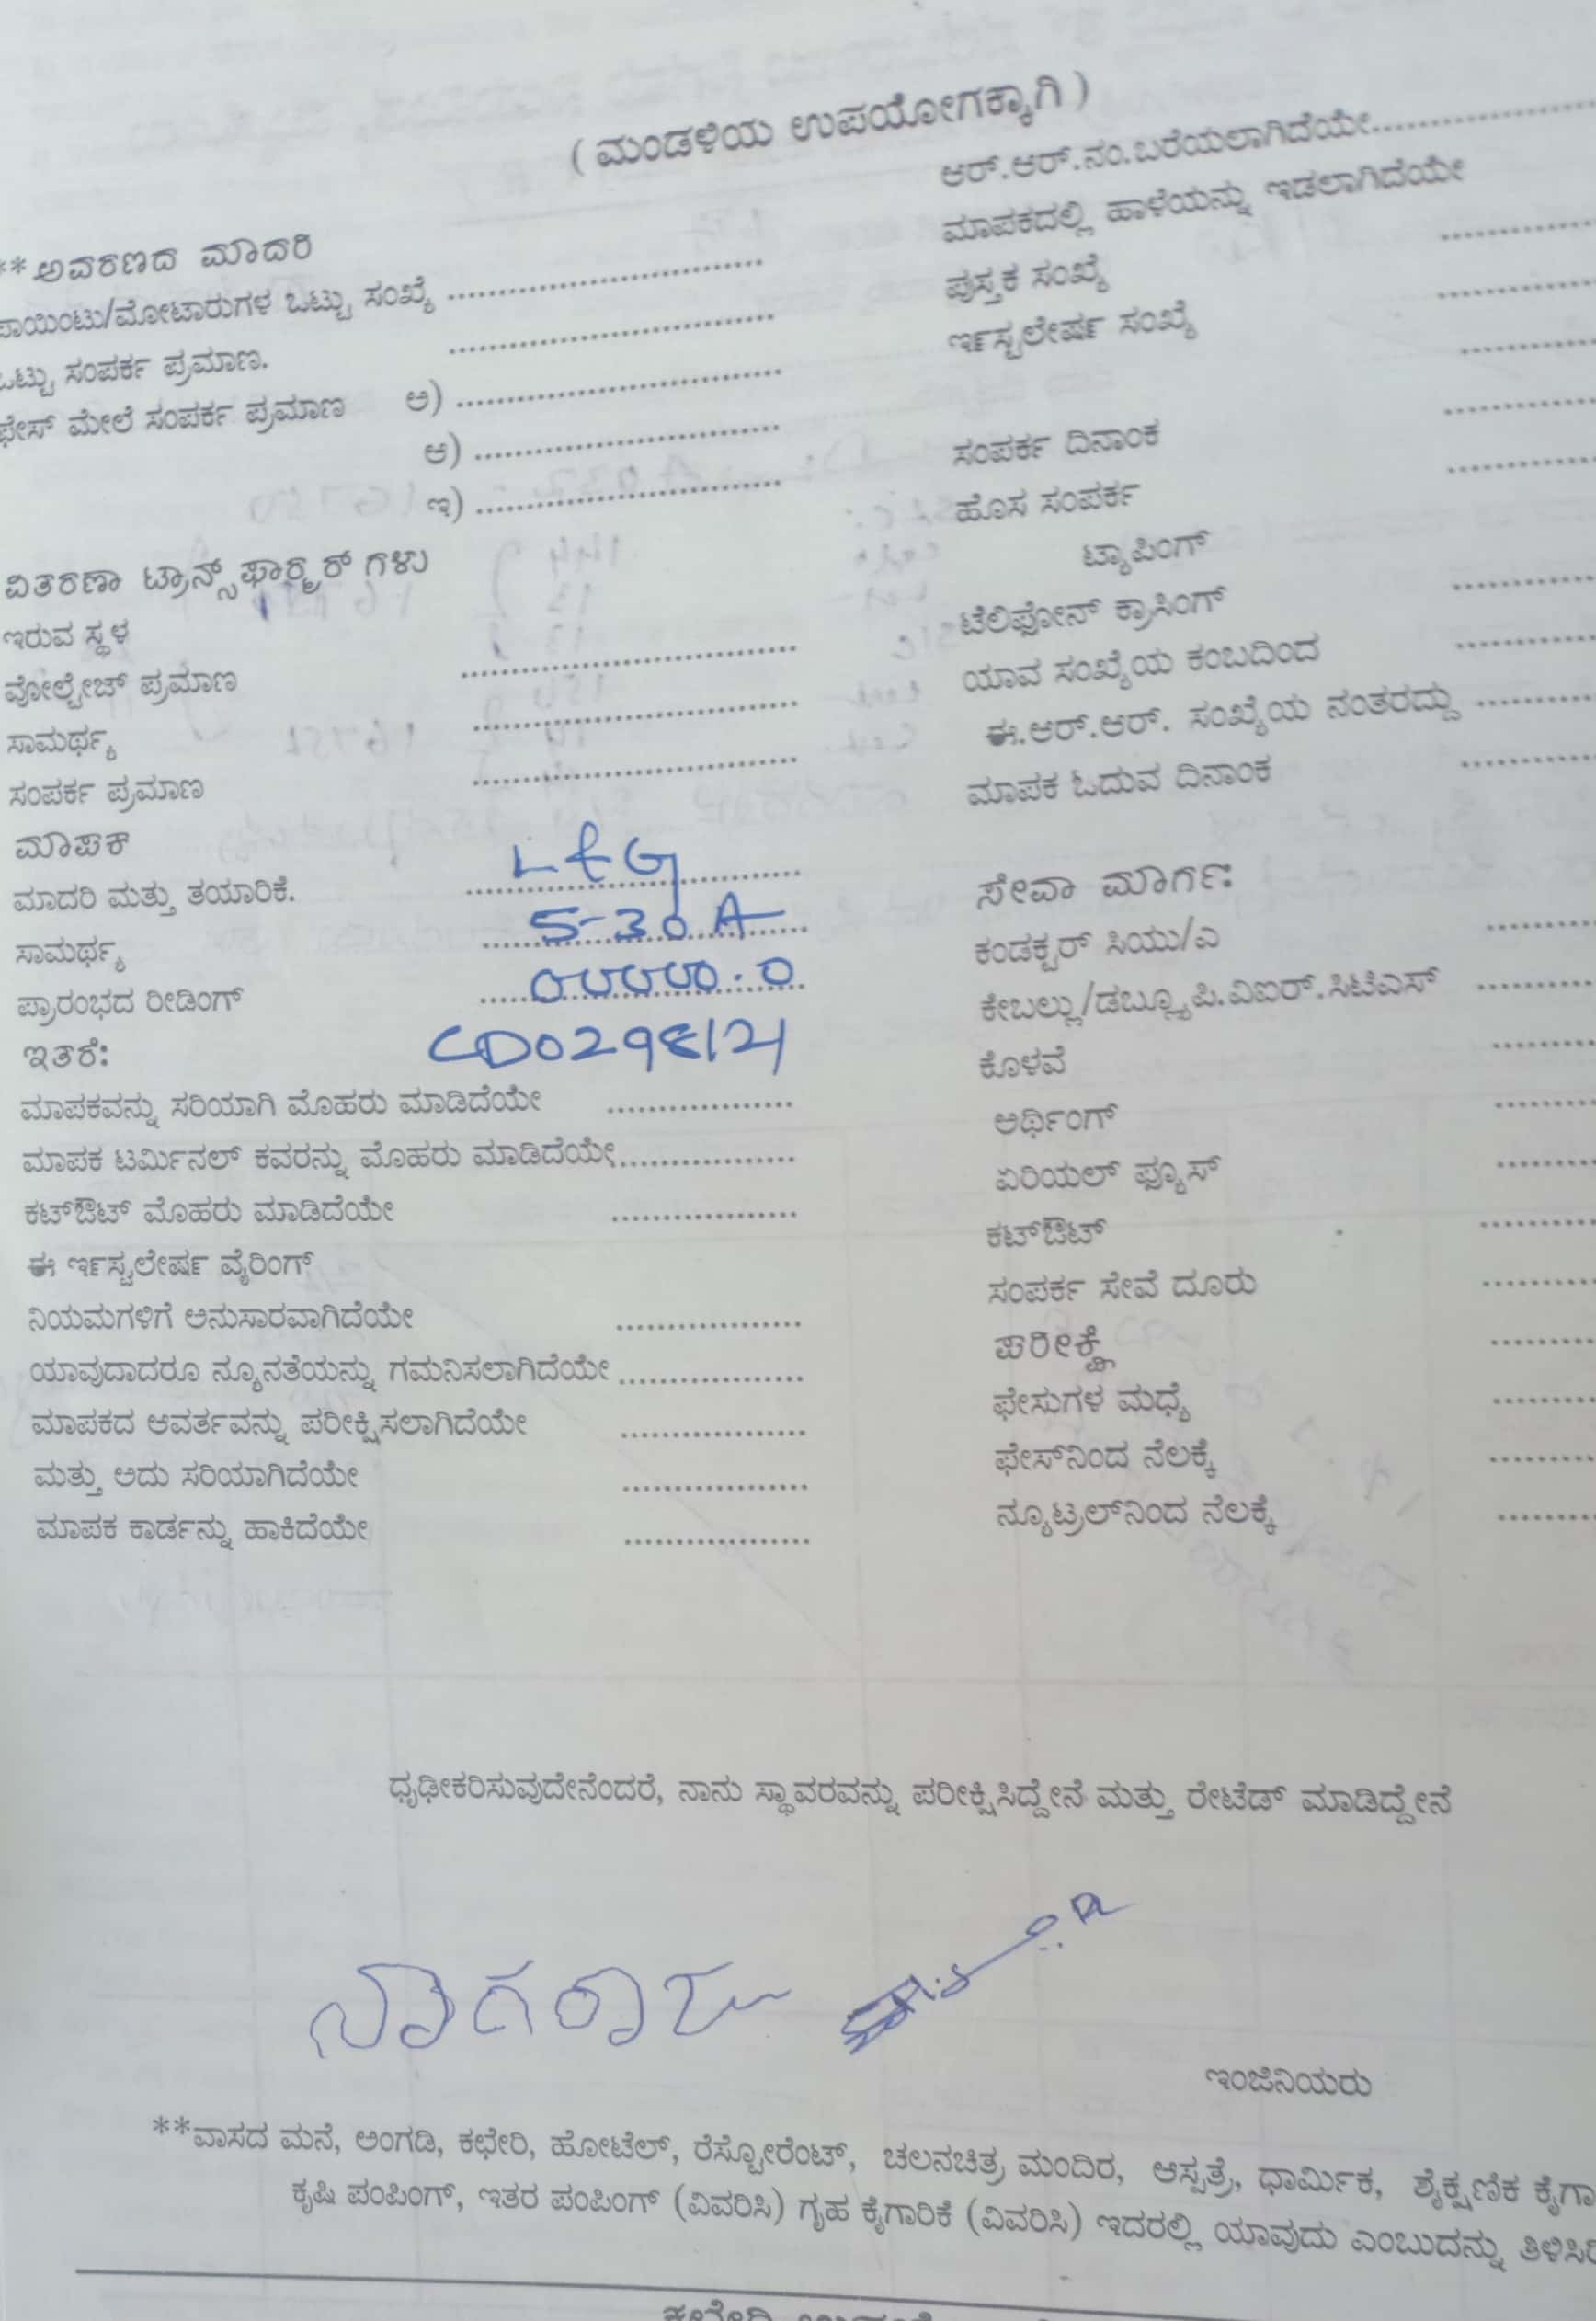 ( ಮಂಡಳಿಯ ಉಪಯೋಗಕ್ಕಾಗಿ )
**ಅವರಣದ ಮಾದರಿ
ಪಾಯಿಂಟು/ಮೋಟಾರುಗಳ ಒಟ್ಟು ಸಂಖ್ಯೆ ..............................
ಒಟ್ಟು ಸಂಪರ್ಕ ಪ್ರಮಾಣ. ..............................
ಫೇಸ್ ಮೇಲೆ ಸಂಪರ್ಕ ಪ್ರಮಾಣ ಅ) ..............................
ಆ) ..............................
ಇ) ..............................
ವಿತರಣಾ ಟ್ರಾನ್ಸ್‌ಫಾರ್‍ಮರ್ ಗಳು
ಇರುವ ಸ್ಥಳ
ವೋಲ್ಟೇಜ್ ಪ್ರಮಾಣ ..............................
ಸಾಮರ್ಥ್ಯ ..............................
ಸಂಪರ್ಕ ಪ್ರಮಾಣ ..............................
ಮಾಪಕ
ಮಾದರಿ ಮತ್ತು ತಯಾರಿಕೆ. L&G
ಸಾಮರ್ಥ್ಯ 5-30 A
ಪ್ರಾರಂಭದ ರೀಡಿಂಗ್ 00000.0
ಇತರೆ: CD0298121
ಮಾಪಕವನ್ನು ಸರಿಯಾಗಿ ಮೊಹರು ಮಾಡಿದೆಯೇ ..................
ಮಾಪಕ ಟರ್ಮಿನಲ್ ಕವರನ್ನು ಮೊಹರು ಮಾಡಿದೆಯೇ..................
ಕಟ್‌ಔಟ್ ಮೊಹರು ಮಾಡಿದೆಯೇ ..................
ಈ ಇನ್‍ಸ್ಟಲೇಷನ್‍ ವೈರಿಂಗ್
ನಿಯಮಗಳಿಗೆ ಅನುಸಾರವಾಗಿದೆಯೇ ..................
ಯಾವುದಾದರೂ ನ್ಯೂನತೆಯನ್ನು ಗಮನಿಸಲಾಗಿದೆಯೇ ..................
ಮಾಪಕದ ಆವರ್ತವನ್ನು ಪರೀಕ್ಷಿಸಲಾಗಿದೆಯೇ ..................
ಮತ್ತು ಅದು ಸರಿಯಾಗಿದೆಯೇ ..................
ಮಾಪಕ ಕಾರ್ಡನ್ನು ಹಾಕಿದೆಯೇ ..................
ಆರ್.ಆರ್.ನಂ.ಬರೆಯಲಾಗಿದೆಯೇ....................
ಮಾಪಕದಲ್ಲಿ ಹಾಳೆಯನ್ನು ಇಡಲಾಗಿದೆಯೇ ............
ಪುಸ್ತಕ ಸಂಖ್ಯೆ ............
ಇನ್‍ಸ್ಟಲೇಷನ್‍ ಸಂಖ್ಯೆ ............
ಸಂಪರ್ಕ ದಿನಾಂಕ ............
ಹೊಸ ಸಂಪರ್ಕ ............
ಟ್ಯಾಪಿಂಗ್
ಟೆಲಿಫೋನ್ ಕ್ರಾಸಿಂಗ್ ............
ಯಾವ ಸಂಖ್ಯೆಯ ಕಂಬದಿಂದ ............
ಈ.ಆರ್.ಆರ್. ಸಂಖ್ಯೆಯ ನಂತರದ್ದು ............
ಮಾಪಕ ಓದುವ ದಿನಾಂಕ ............
ಸೇವಾ ಮಾರ್ಗ:
ಕಂಡಕ್ಟರ್ ಸಿಯು/ಎ ............
ಕೇಬಲ್ಲು/ಡಬ್ಲ್ಯೂಪಿ.ವಿಐರ್.ಸಿಟಿಎಸ್ ............
ಕೊಳವೆ ............
ಅರ್ಥಿಂಗ್ ............
ಏರಿಯಲ್ ಫ್ಯೂಸ್ ............
ಕಟ್‌ಔಟ್ ............
ಸಂಪರ್ಕ ಸೇವೆ ದೂರು ............
ಪರೀಕ್ಷೆ ............
ಫೇಸುಗಳ ಮಧ್ಯೆ ............
ಫೇಸ್‌ನಿಂದ ನೆಲಕ್ಕೆ ............
ನ್ಯೂಟ್ರಲ್‌ನಿಂದ ನೆಲಕ್ಕೆ ............
ಧೃಢೀಕರಿಸುವುದೇನೆಂದರೆ, ನಾನು ಸ್ಥಾವರವನ್ನು ಪರೀಕ್ಷಿಸಿದ್ದೇನೆ ಮತ್ತು ರೇಟೆಡ್ ಮಾಡಿದ್ದೇನೆ
ನಾಗರಾಜು
ಇಂಜಿನಿಯರು
**ವಾಸದ ಮನೆ, ಅಂಗಡಿ, ಕಛೇರಿ, ಹೋಟೆಲ್, ರೆಸ್ಟೋರೆಂಟ್, ಚಲನಚಿತ್ರ ಮಂದಿರ, ಆಸ್ಪತ್ರೆ, ಧಾರ್ಮಿಕ, ಶೈಕ್ಷಣಿಕ ಕೈಗಾ
ಕೃಷಿ ಪಂಪಿಂಗ್, ಇತರ ಪಂಪಿಂಗ್ (ವಿವರಿಸಿ) ಗೃಹ ಕೈಗಾರಿಕೆ (ವಿವರಿಸಿ) ಇದರಲ್ಲಿ ಯಾವುದು ಎಂಬುದನ್ನು ತಿಳಿಸಿರಿ